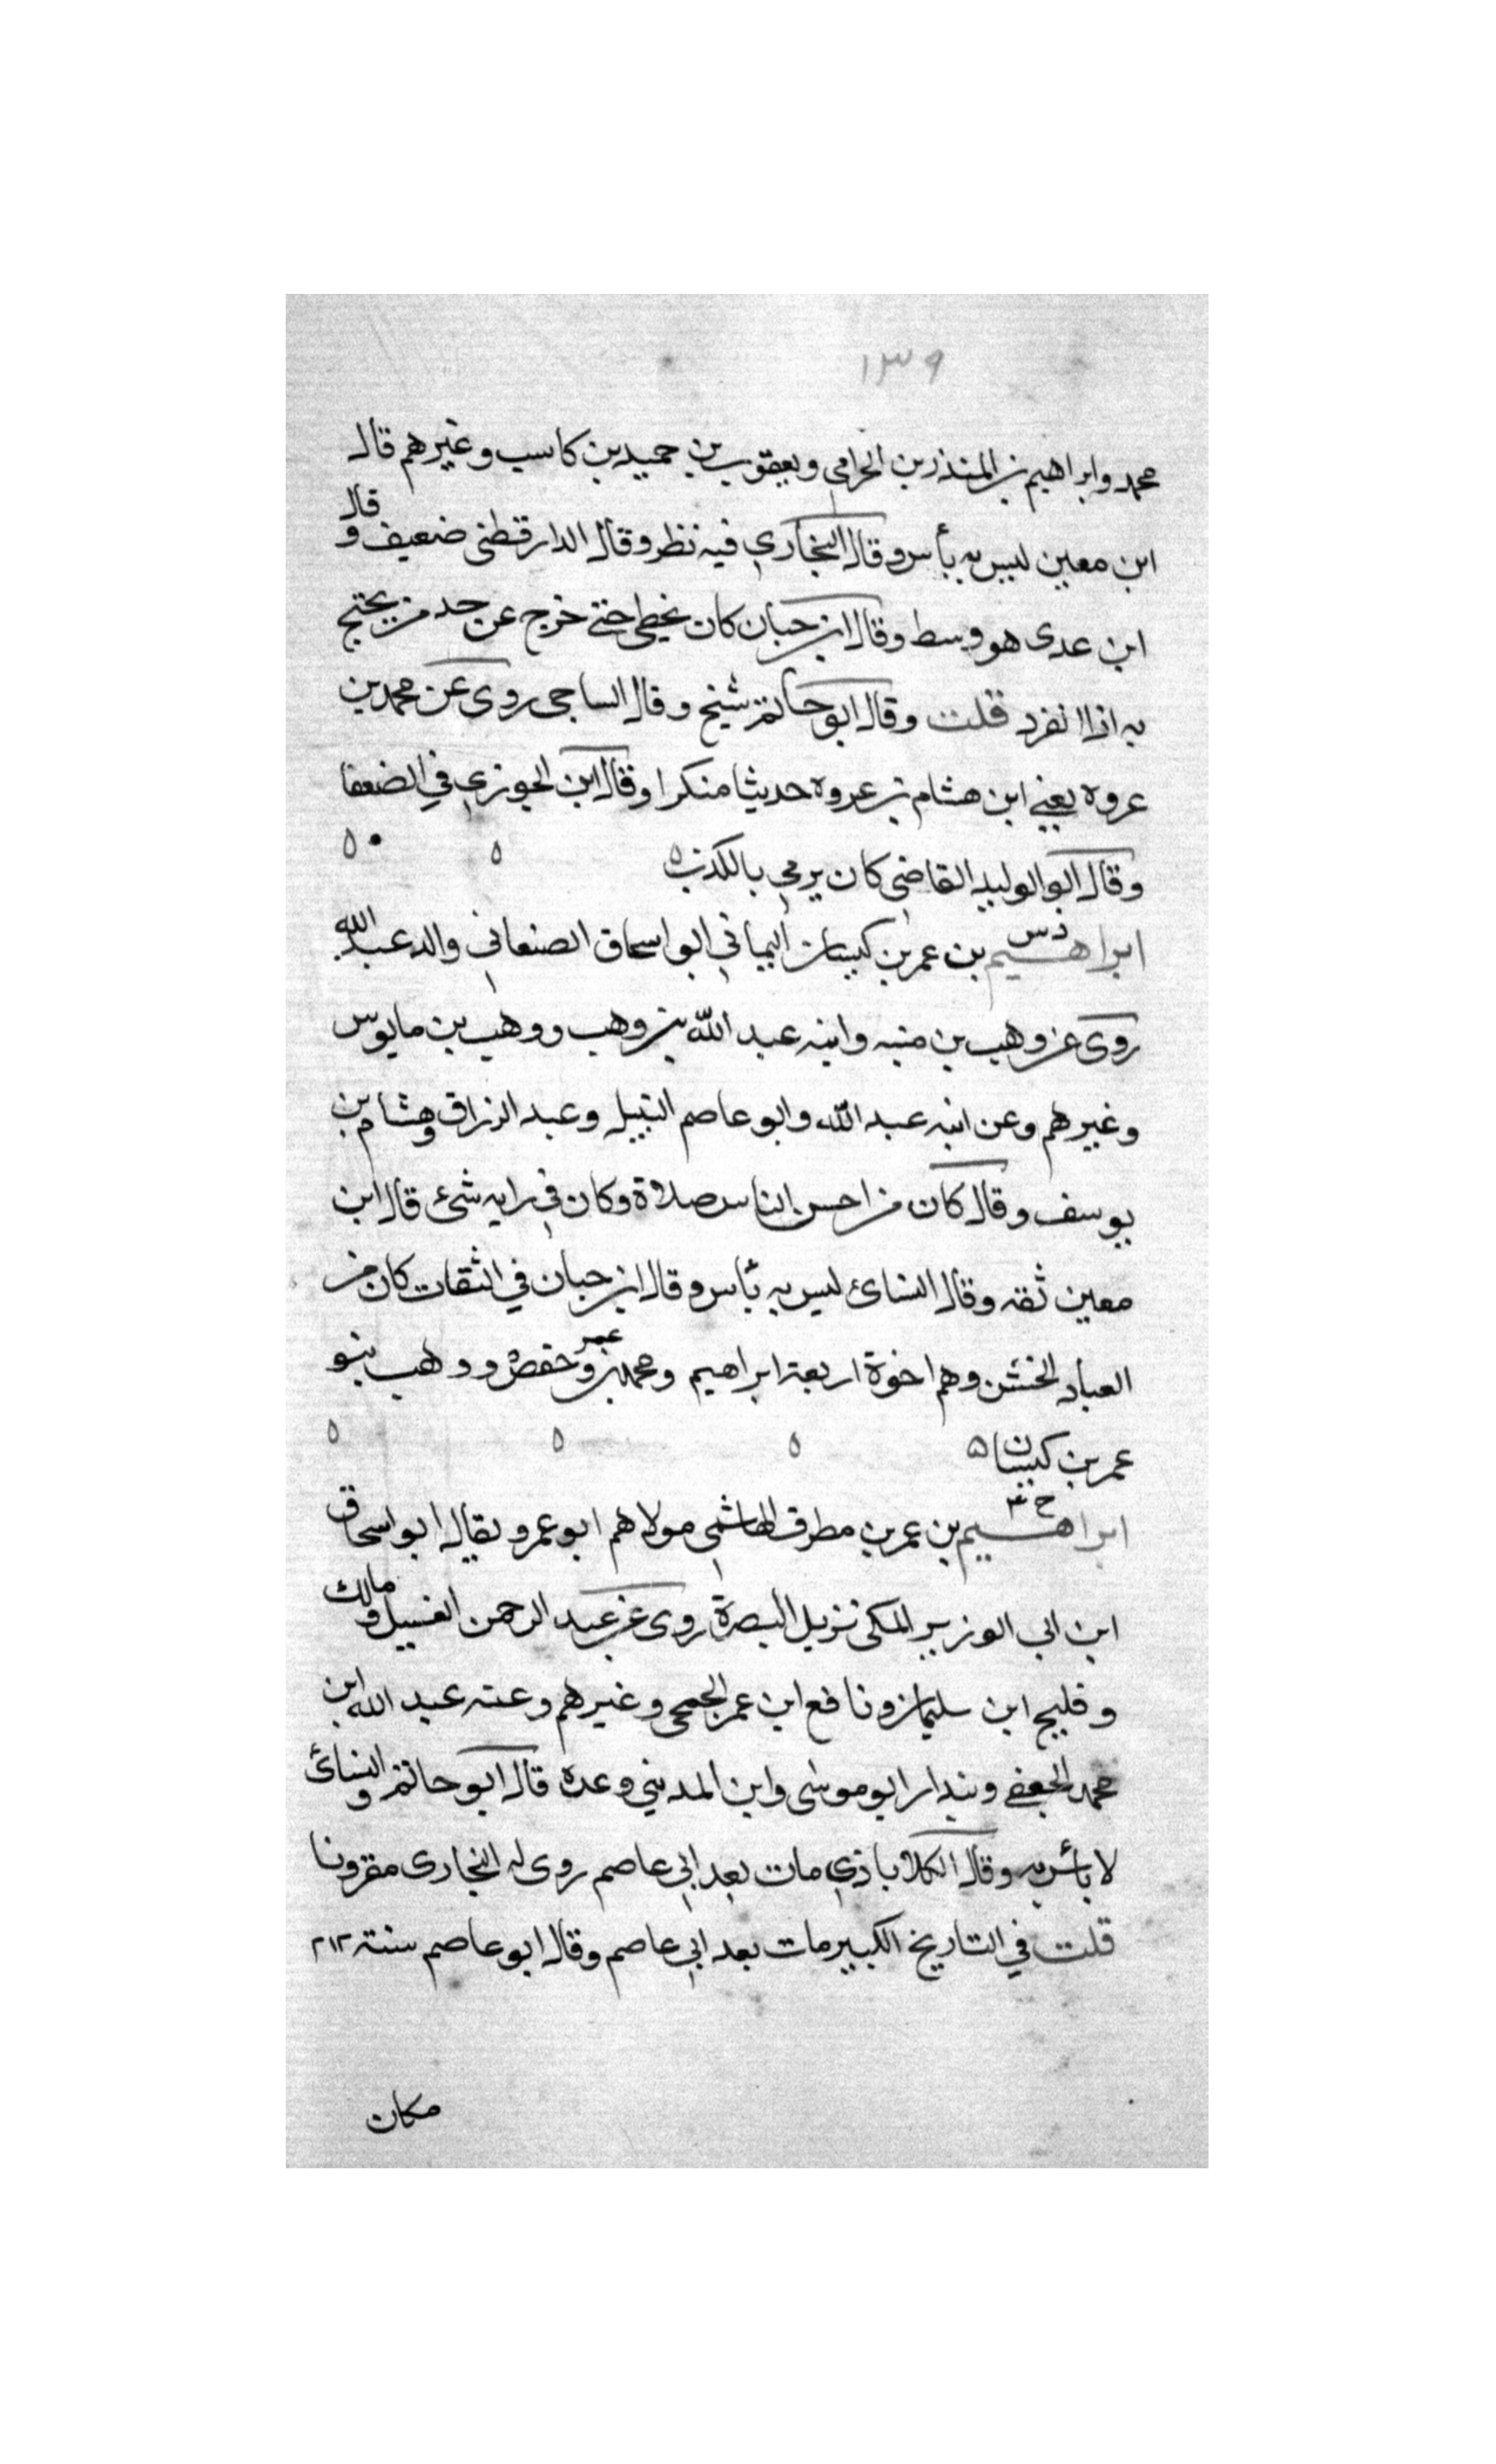 ١٣٩
محمد وابراهيم بن المنذر بن الحزامي ويعقوب بن حميد بن كاسب وغيرهم قال
ابن معين ليس به بأس وقال البخاري فيه نظر وقال الدارقطني ضعيف وقال
ابن عدى هو وسط وقال ابن حبان كان يخطي حتى خرج عن حد من يحتج
به اذا انفرد قلت وقال ابو حاتم شيخ وقال الساجى روى عن محمد بن
عروه يعني ابن هشام بن عروه حديثا منكرا وقال ابن الجوزي في الضعفا
وقال ابو الوليد القاضي كان يرمي بالكذب ٥ ٥ ٥
د س
ابراهيم بن عمر بن كيسان اليماني ابو اسحاق الصنعاني والد عبد الله
روى عن وهب بن منبه وابنه عبد الله بن وهب ووهب بن مايوس
وغيرهم وعن ابنه عبد الله وابو عاصم النبيل وعبد الرزاق وهشام بن
يوسف وقال كان من احسن الناس صلاة وكان في رايه شئ قال ابن
معين ثقه وقال النسائ ليس به بأس وقال ابن حبان في الثقات كان من
العباد الخشن وهم اخوة اربعة ابراهيم ومحمد بن عمر وحفص ووهب بنو
عمر بن كيسان ٥ ٥ ٥ ٥
خ ٤
ابراهيم بن عمر بن مطرف الهاشمي مولاهم ابو عمرو يقال ابو اسحاق
ابن ابي الوزير المكى نزيل البصرة روى عن عبد الرحمن الغسيل ومالك
وفليح ابن سليمان ونافع ابن عمر الجمحى وغيرهم وعنه عبد الله ابن
محمد الجعفي وبندار ابو موسى وابن المديني وعده قال ابو حاتم والنسائ
لا بأس به وقال الكلاباذي مات بعد ابي عاصم روى له البخارى مقرونا
قلت في التاريخ الكبير مات بعد ابي عاصم وقال ابو عاصم سنة ٢١٢
مكان